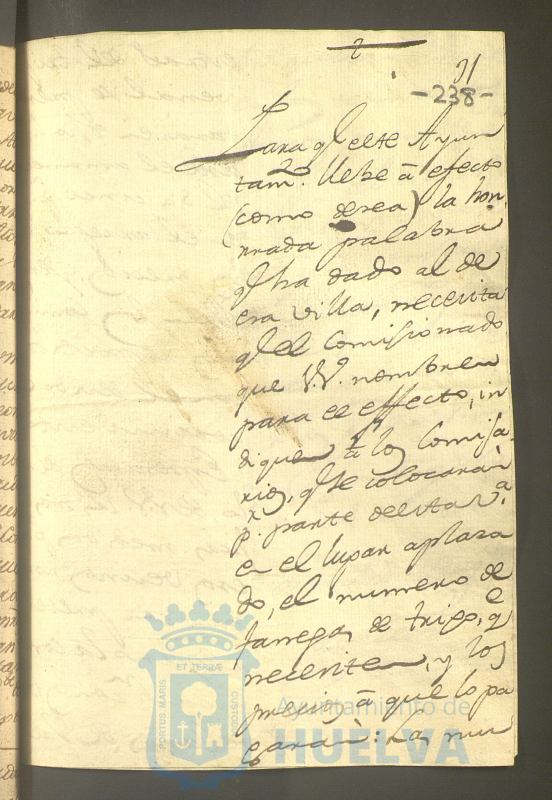 2
31
-238-
Para q.e este Ayun
tam.to lleve â efecto
(como desea) la hon
rrada palabra
q.e ha dado al de
esa villa, necesita
q.e el Comisionado
que V.V. nombren
para ee effecto, in
diquen â los Comisa
rios, q.e se colocarán
p.r parte de esta V.a
en el lugar aplaza
do, el numero de
fanegas de trigo, q.e
necesiten, y los
precios â que lo pa
garàn: las mu
ET TERRÆ
PORTUS MARIS
CUSTODIA
Ayuntamiento de
HUELVA